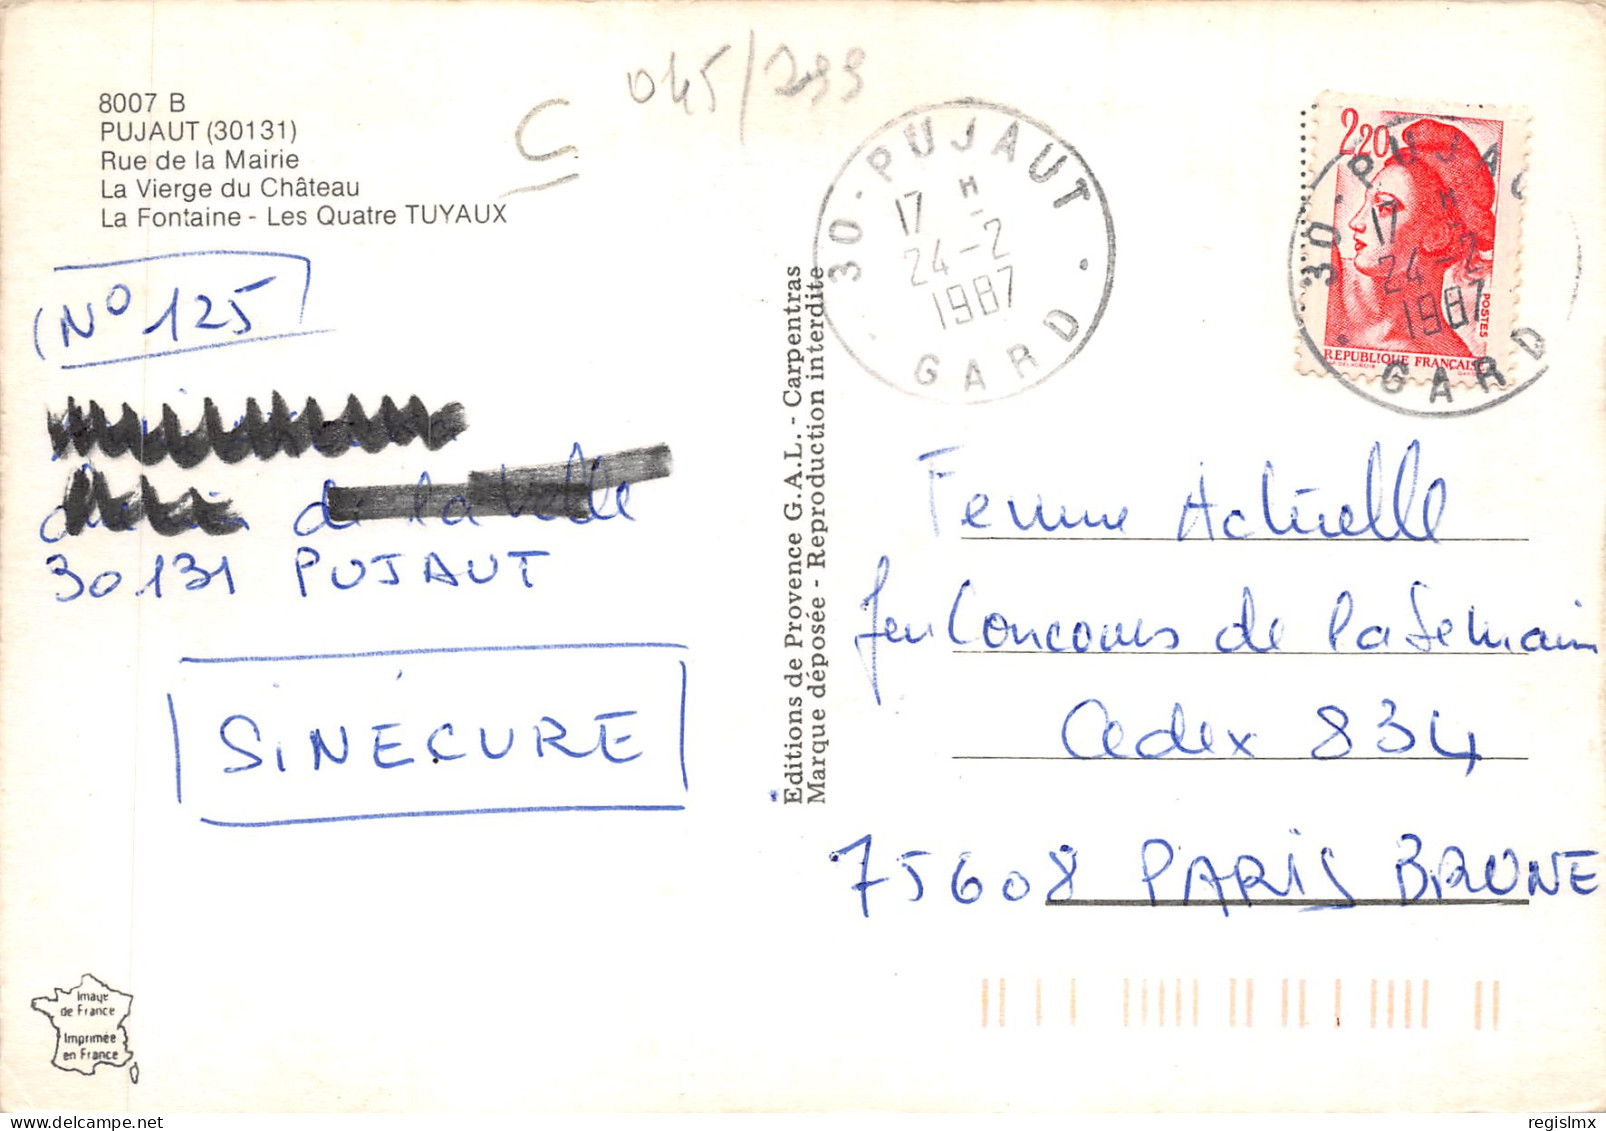 8007 B
PUJAUT (30131)
Rue de la Mairie
La Vierge du Château
La Fontaine - Les Quatre TUYAUX
045/299
N° 125
de la
30131 PUJAUT
SINÉCURE
Editions de Provence G.A.L. - Carpentras
Marque déposée - Reproduction interdite
30 - PUJAUT
17 H
24-2
1987
GARD
2,20
POSTES
REPUBLIQUE FRANÇAISE
30 - PUJAU
17 H
24-2
1987
GARD
Femme Actuelle
Jeu Concours de la Semaine
Cedex 834
75608 PARIS BRUNE
Image
de France
Imprimée
en France
regislmx